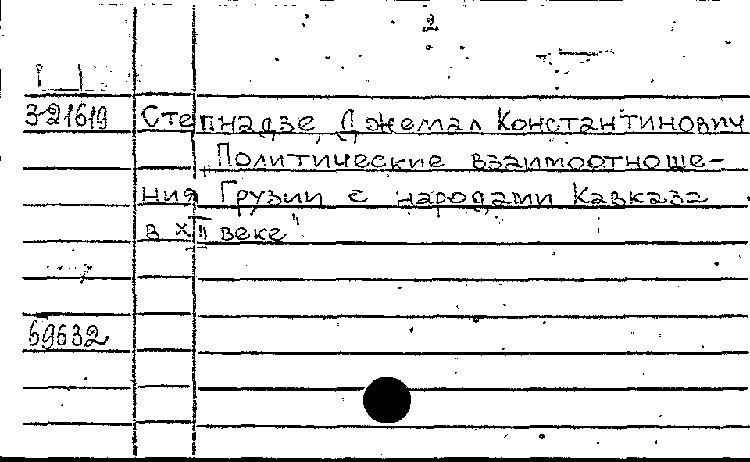 2
3-21619 Степнадзе Джемал Константинович
„Политические взаимоотноше-
ния Грузии с народами Кавказа
в XII веке"
69632